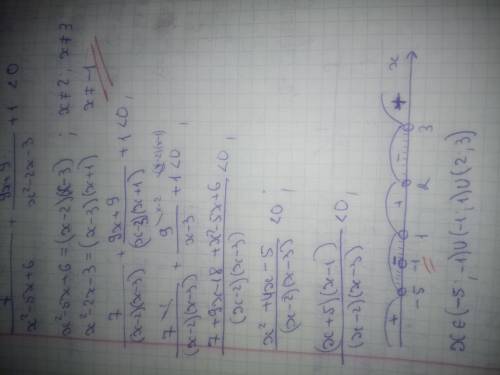 7/(x²-5x+6) + (9x+9)/(x²-2x-3) + 1 < 0
x²-5x+6=(x-2)(x-3) ; x≠2; x≠3
x²-2x-3=(x-3)(x+1) x≠-1
7/((x-2)(x-3)) + (9x+9)/((x-3)(x+1)) + 1<0;
7/((x-2)(x-3)) + 9/(x-3) + 1<0;
(7+9x-18+x²-5x+6)/((x-2)(x-3)) <0;
(x²+4x-5)/((x-2)(x-3)) <0;
((x+5)(x-1))/((x-2)(x-3)) <0;
+ + + x
-5 -1 1 2 3
x∈(-5;-1)∪(-1;1)∪(2;3)